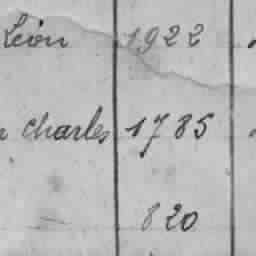 Léon 1922
Charles 1785
820